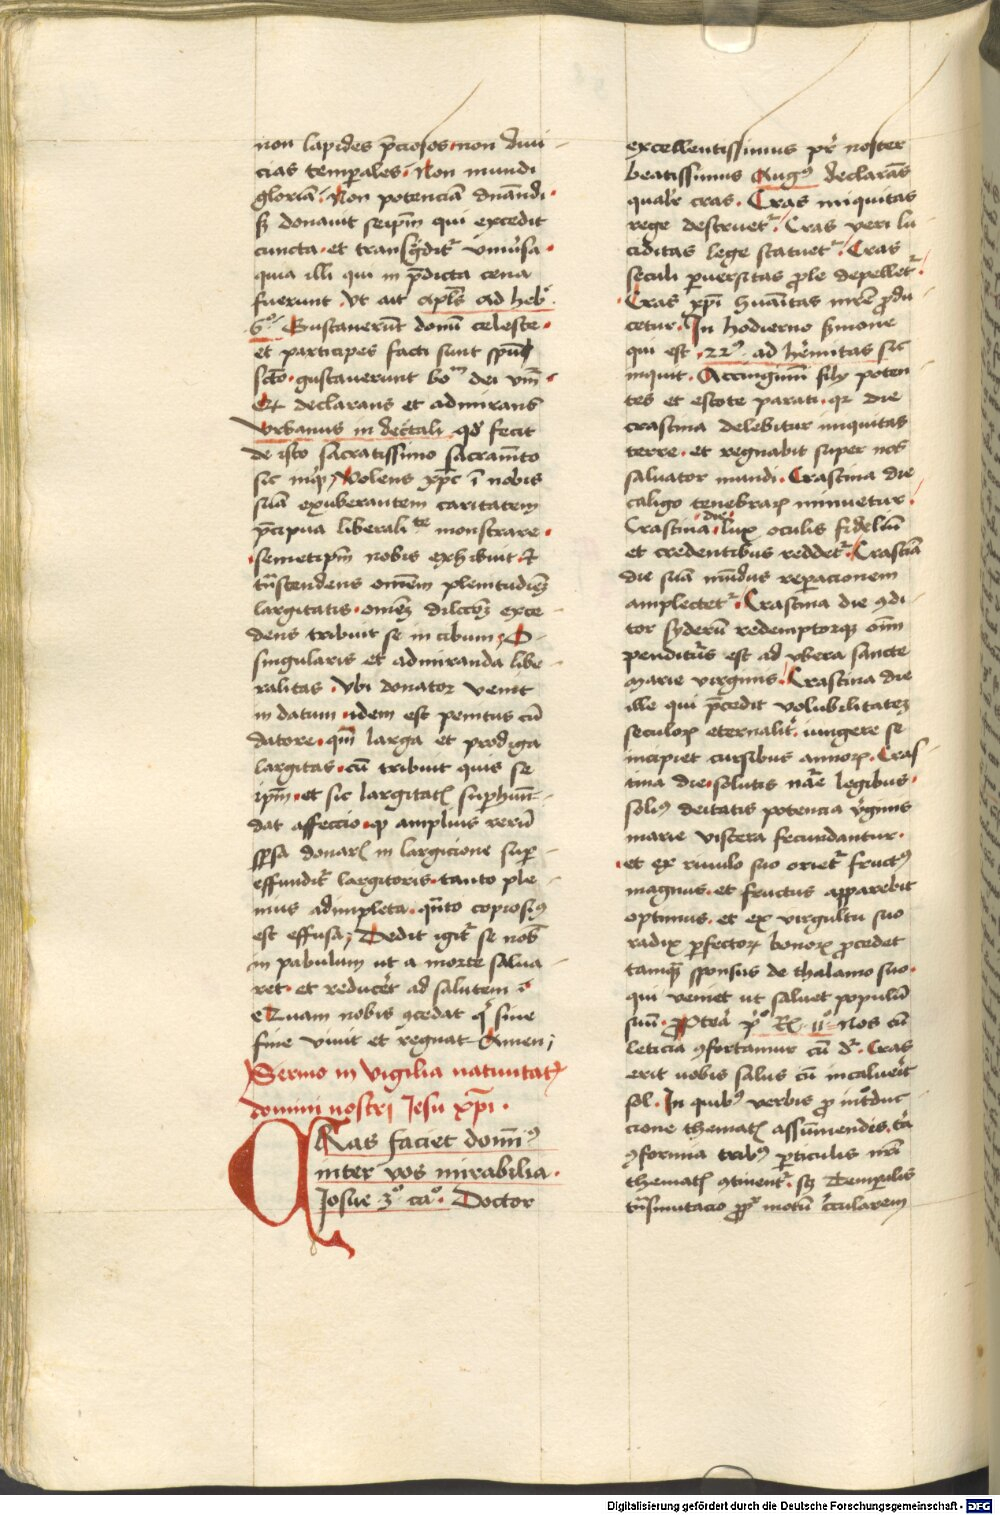 non lapides p̄ciosos non diui
cias temperales Non mundi
gloriā Non potenciā dnān̄di
sꝫ donauit seip̄m qui excedit
cuncta et transgr̄ditꝛ vniūsa
quia illi qui in p̄dicta cena
fuerunt Vt ait apl̄s ad hebꝰ
6º Gustauerūt donū celeste
et participes facti sunt spūs
scō gustauerunt bonū dei vm̄
Et declarans et admirans
Vrbanus in decr̄tali qď fecit
de isto sacratissimo sacramēto
sic inq̇ Volens xp̄c ī nobis
suā exuberantem caritatem
p̄cipua liberalitate monstrare
semetip̄m nobis exhibuit Et
trāscendens omēm plenitudinē
largitatis omēꝫ dilcc̄oꝫ exce
dens tribuit se in cibum O
singularis et admiranda libe
ralitas Vbi donator venit
in datum idem est penitus cū
datore qm̄ larga et prodiga
largitas cū tribuit quis se
ip̄m et sic largitatꝭ suphun
dat affeccio qꝫ amplius rerū
sp̄sa donarꝭ in largicione sup̄
effunditꝛ largitoris tanto ple
nius adimpleta qn̄to copiosiꝰ
est effusa Dedit igitꝛ se nob̄
in pabulum ut a morte salua
ret et reducēt ad salutem
Quam nobis ꝯcedat qͥ sine
fine viuit et regnat Amen
Sermo in vigilia natiuitatꝭ
domini nostrj Jesu xp̄i
CRas faciet domīꝰ
inter vos mirabilia
Josue 3º caº Doctor
excellentissimus pr̄ noster
beatissimus Augꝰ declarās
qualr̄ cras Cras iniquitas
rege destruetꝛ Cras veri lu
ciditas lege statuetꝛ Cras
seculi puersitas ꝓle depelletꝛ
Cras xp̄i huāitas nr̄e ꝓdu
cetur In hodierno s̄mone
qui est 22º ad hēmitas sic
inquit Accingimī filij poten
tes et estote parati qꝛ die
crastina delebitur iniquitas
terre et regnabit super nos
saluator mundi Crastina die
caligo tenebraꝝ minuetur
Crastina die lux oculis fidelium
et credentibus reddetꝛ Crastīa
die suā mūdus reparacionem
amplectetꝛ Crastina die ꝯdi
tor syderū redemptorqꝫ oīm
penditur̄s est ad vbera sancte
Marie virginis Crastina die
ille qui p̄cedit volubilitateꝫ
seculoꝝ eternalit̄ iungere se
incipiet cursibus annoꝝ Cras
tina die solutis nāe legibus
soliꝰ deitatis potencia v̄ginis
marie viscera fecundantur
et ex riuulo suo orietꝛ fructꝰ
magnus et fructus apparebit
optimus et ex virgultu suo
radix ꝑfectoꝝ bonoꝝ ꝓcedet
tamqꝫ sponsus de thalamo suo
qui veniet ut saluet populū
suū ꝓpterea pͦ Rꝭ 11º Nos cū
leticia ꝯfortamur cū dꝛ Cras
erit nobis salus cū incaluerit
sol In quibꝰ verbis ꝓ intͦduc
cione thematꝭ assūmendis tā
ꝯformia tribꝰ ꝑticulis nr̄i
thematꝭ ꝯtinentꝛ sꝫ Temporalis
trāsmutacio ꝓpꝛ motū circularem